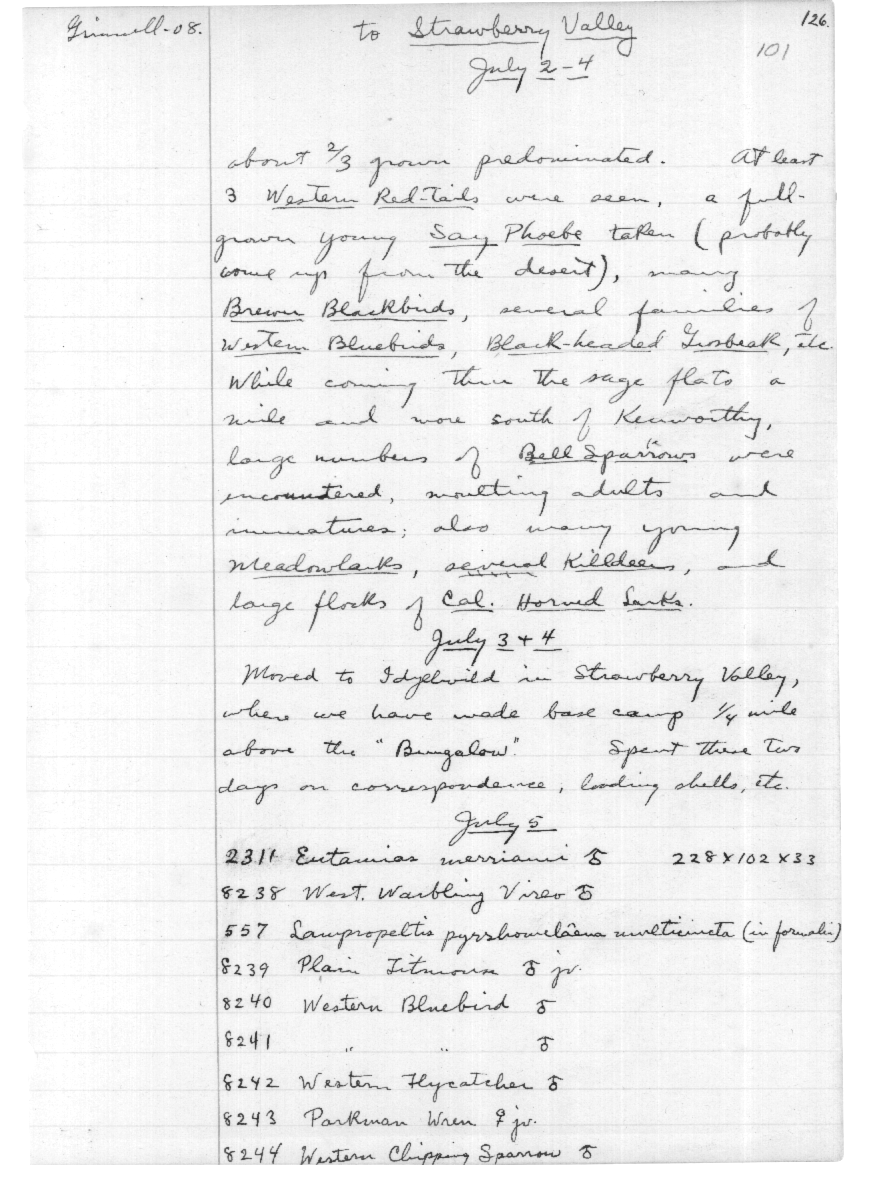 Grinnell-08.
to Strawberry Valley
126.
101
July 2-4
about 2/3 grown predominated. At least
3 Western Red-Tails were seen, a full-
grown young Say Phoebe taken (probably
come up from the desert), many
Brewer Blackbirds, several families of
Western Bluebirds, Black-headed Grosbeak, etc.
While coming thru the sage flats a
mile and more south of Kenworthy,
large numbers of Bell Sparrows were
encountered, moulting adults and
immatures; also many young
Meadowlarks, several Killdeers, and
large flocks of Cal. Horned Larks.
July 3 + 4
Moved to Idyllwild in Strawberry Valley,
where we have made base camp 1/4 mile
above the "Bungalow". Spent these two
days on correspondence, loading shells, etc.
July 5
2311 Eutamias merriami ♂ 228 x 102 x 33
8238 West. Warbling Vireo ♂
557 Lampropeltis pyrrhomelaena multicincta (in formalin)
8239 Plain Titmouse ♂ jv.
8240 Western Bluebird ♂
8241 " " ♂
8242 Western Flycatcher ♂
8243 Parkman Wren ♀ jv.
8244 Western Chipping Sparrow ♂